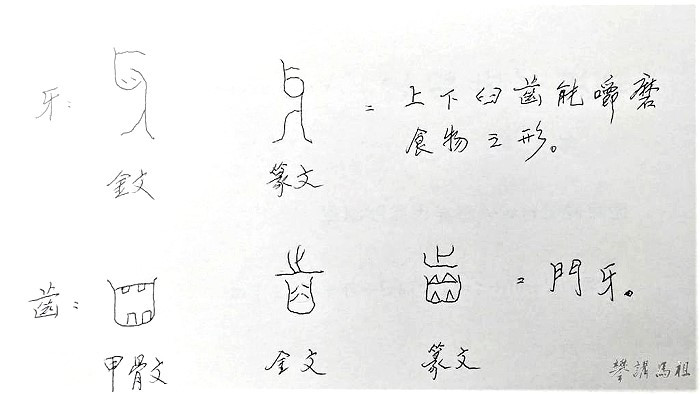 牙：
= 上下臼齒能嚼磨
食物之形。
金文 篆文
齒：
= 門牙。
甲骨文 金文 篆文
攀講馬祖